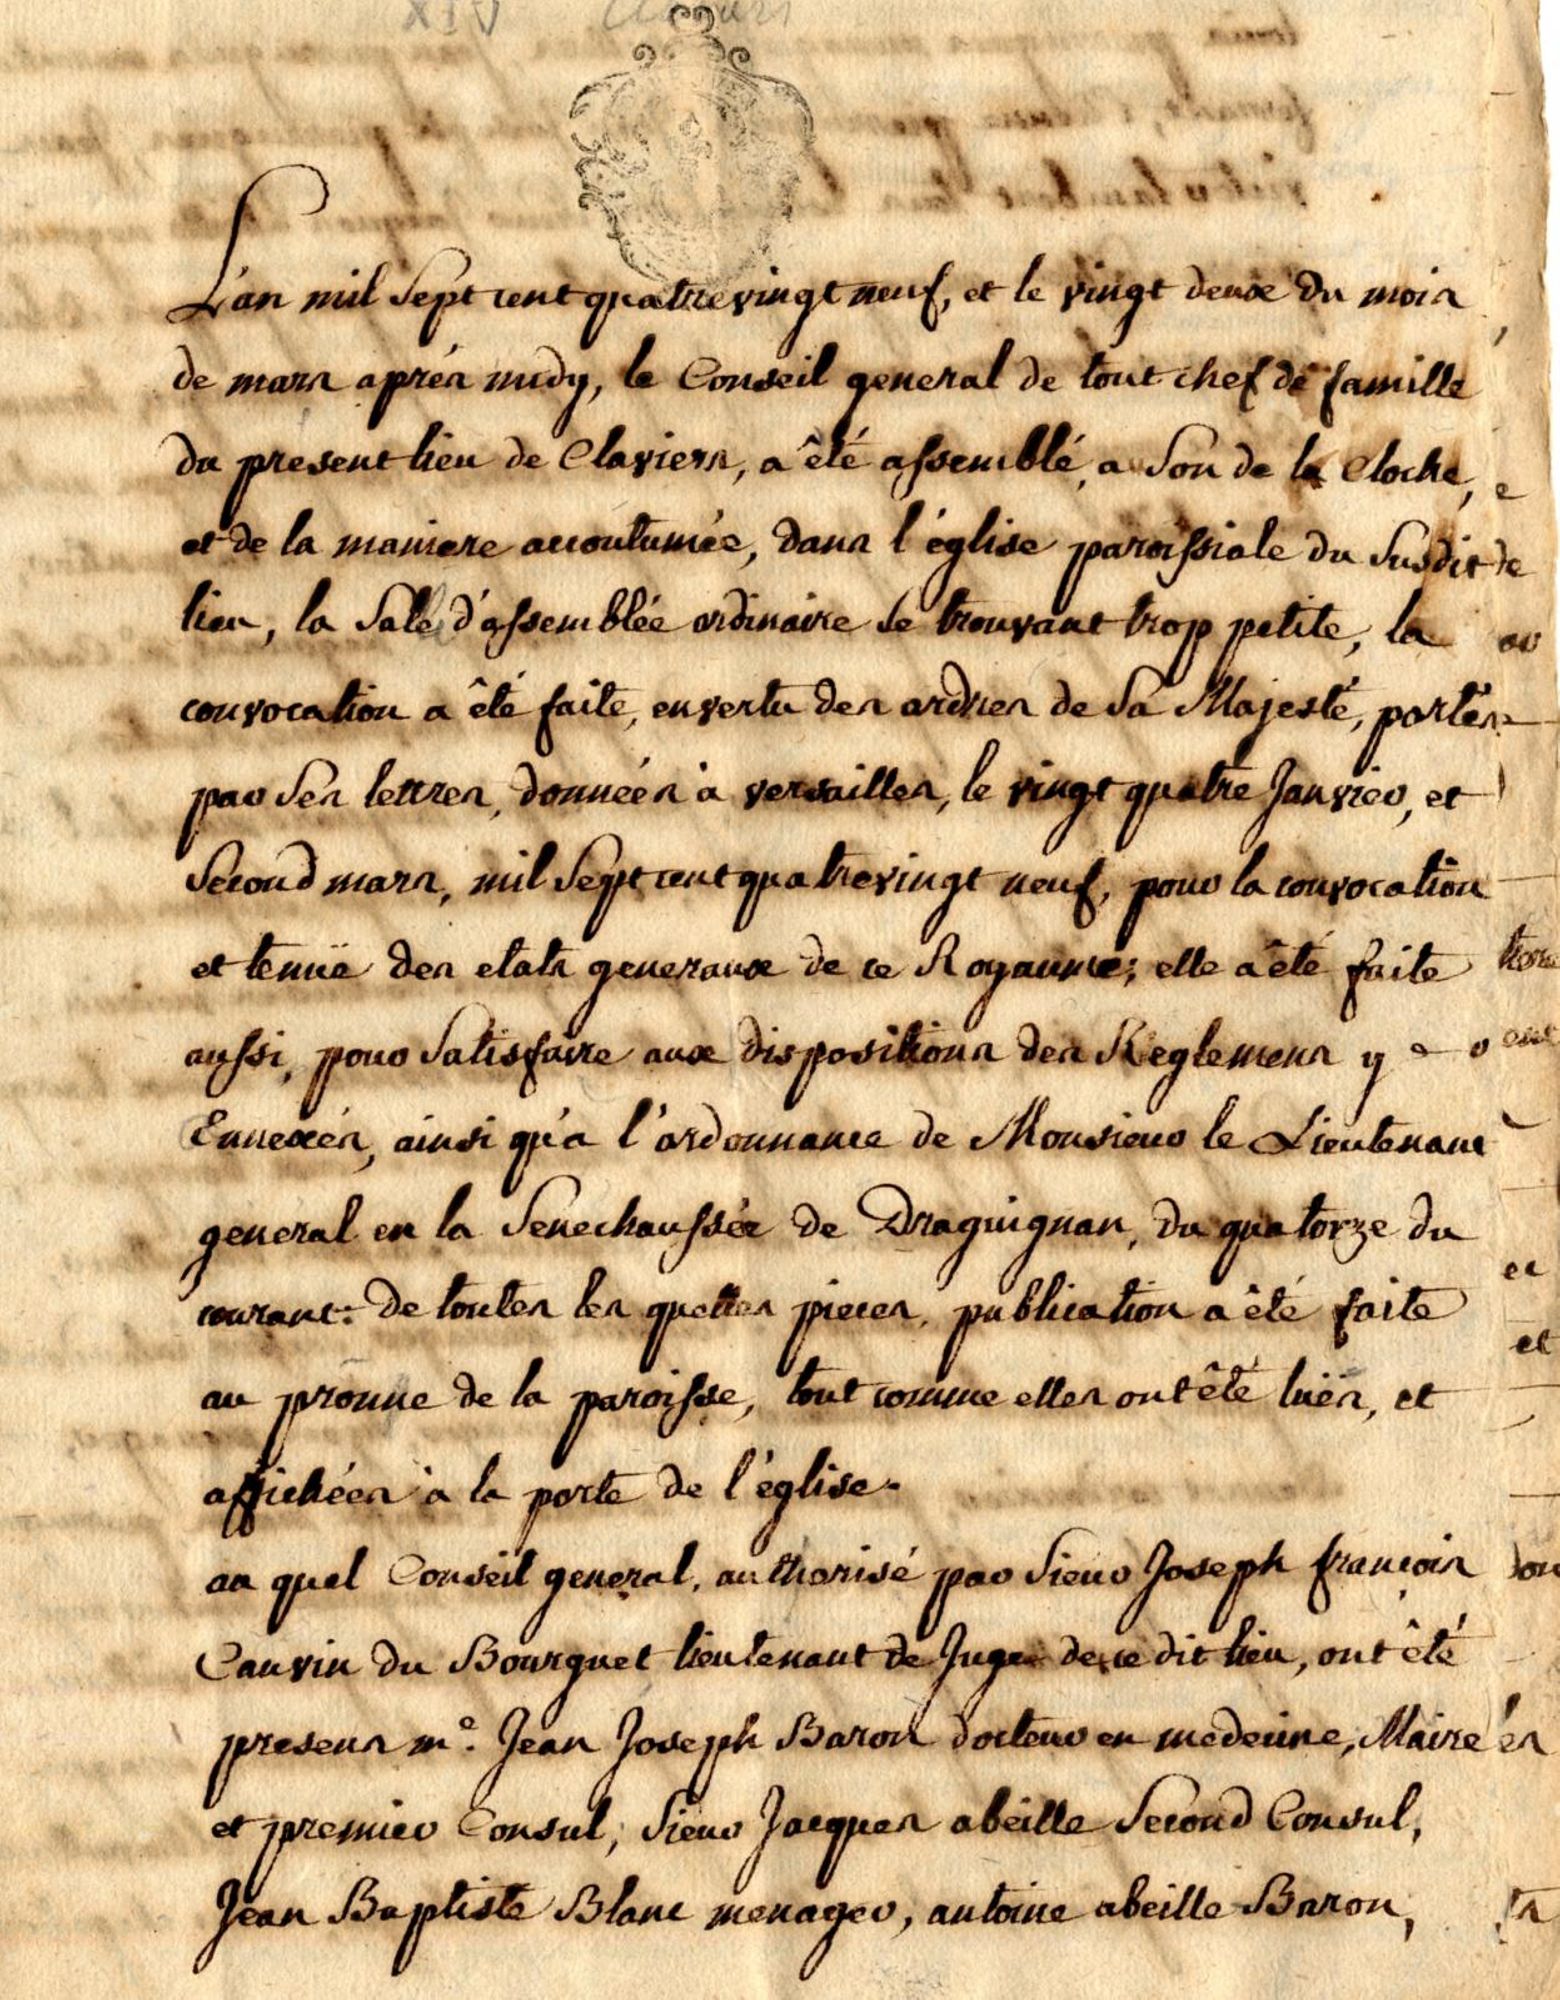 L'an mil Sept cent quatre vingt neuf, et le vingt deux du mois
de mars aprés midy, le Conseil general de tout chef de famille
du present lieu de Claviers, a êté assemblé, a Son de la Cloche,
et de la maniere accoutumée, dans l'église paroissiale du Susdit
lieu, la Sale d'assemblée ordinaire se trouvant trop petite, la
convocation a êté faite, en vertu des ordres de Sa Majesté, portés
par Ses lettres, données à versailles, le vingt quatre Janvier, et
Second mars, mil Sept cent quatre vingt neuf, pour la convocation
et tenüe des etats generaux de ce Royaume; elle a êté faite
aussi, pour Satisfaire aux dispositions des Reglemens y
Ennexés, ainsi qu'a l'ordonnance de Monsieur le Lieutenant
general en la Senechaussée de Draguignan, du quatorze du
courant: De toutes les quelles pieces, publication a êté faite
au pronne de la paroisse, tout comme elles ont êté lües, et
affichées à la porte de l'église.
au quel Conseil general, authorisé par Sieur Joseph françois
Cauvin du Bourguet lieutenant de Juge de ce dit lieu, ont êté
presens me. Jean Joseph Baron docteur en medecine, Maire
et premier Consul, Sieur Jacques abeille Second Consul,
Jean Baptiste Blanc menager, antoine abeille Baron,